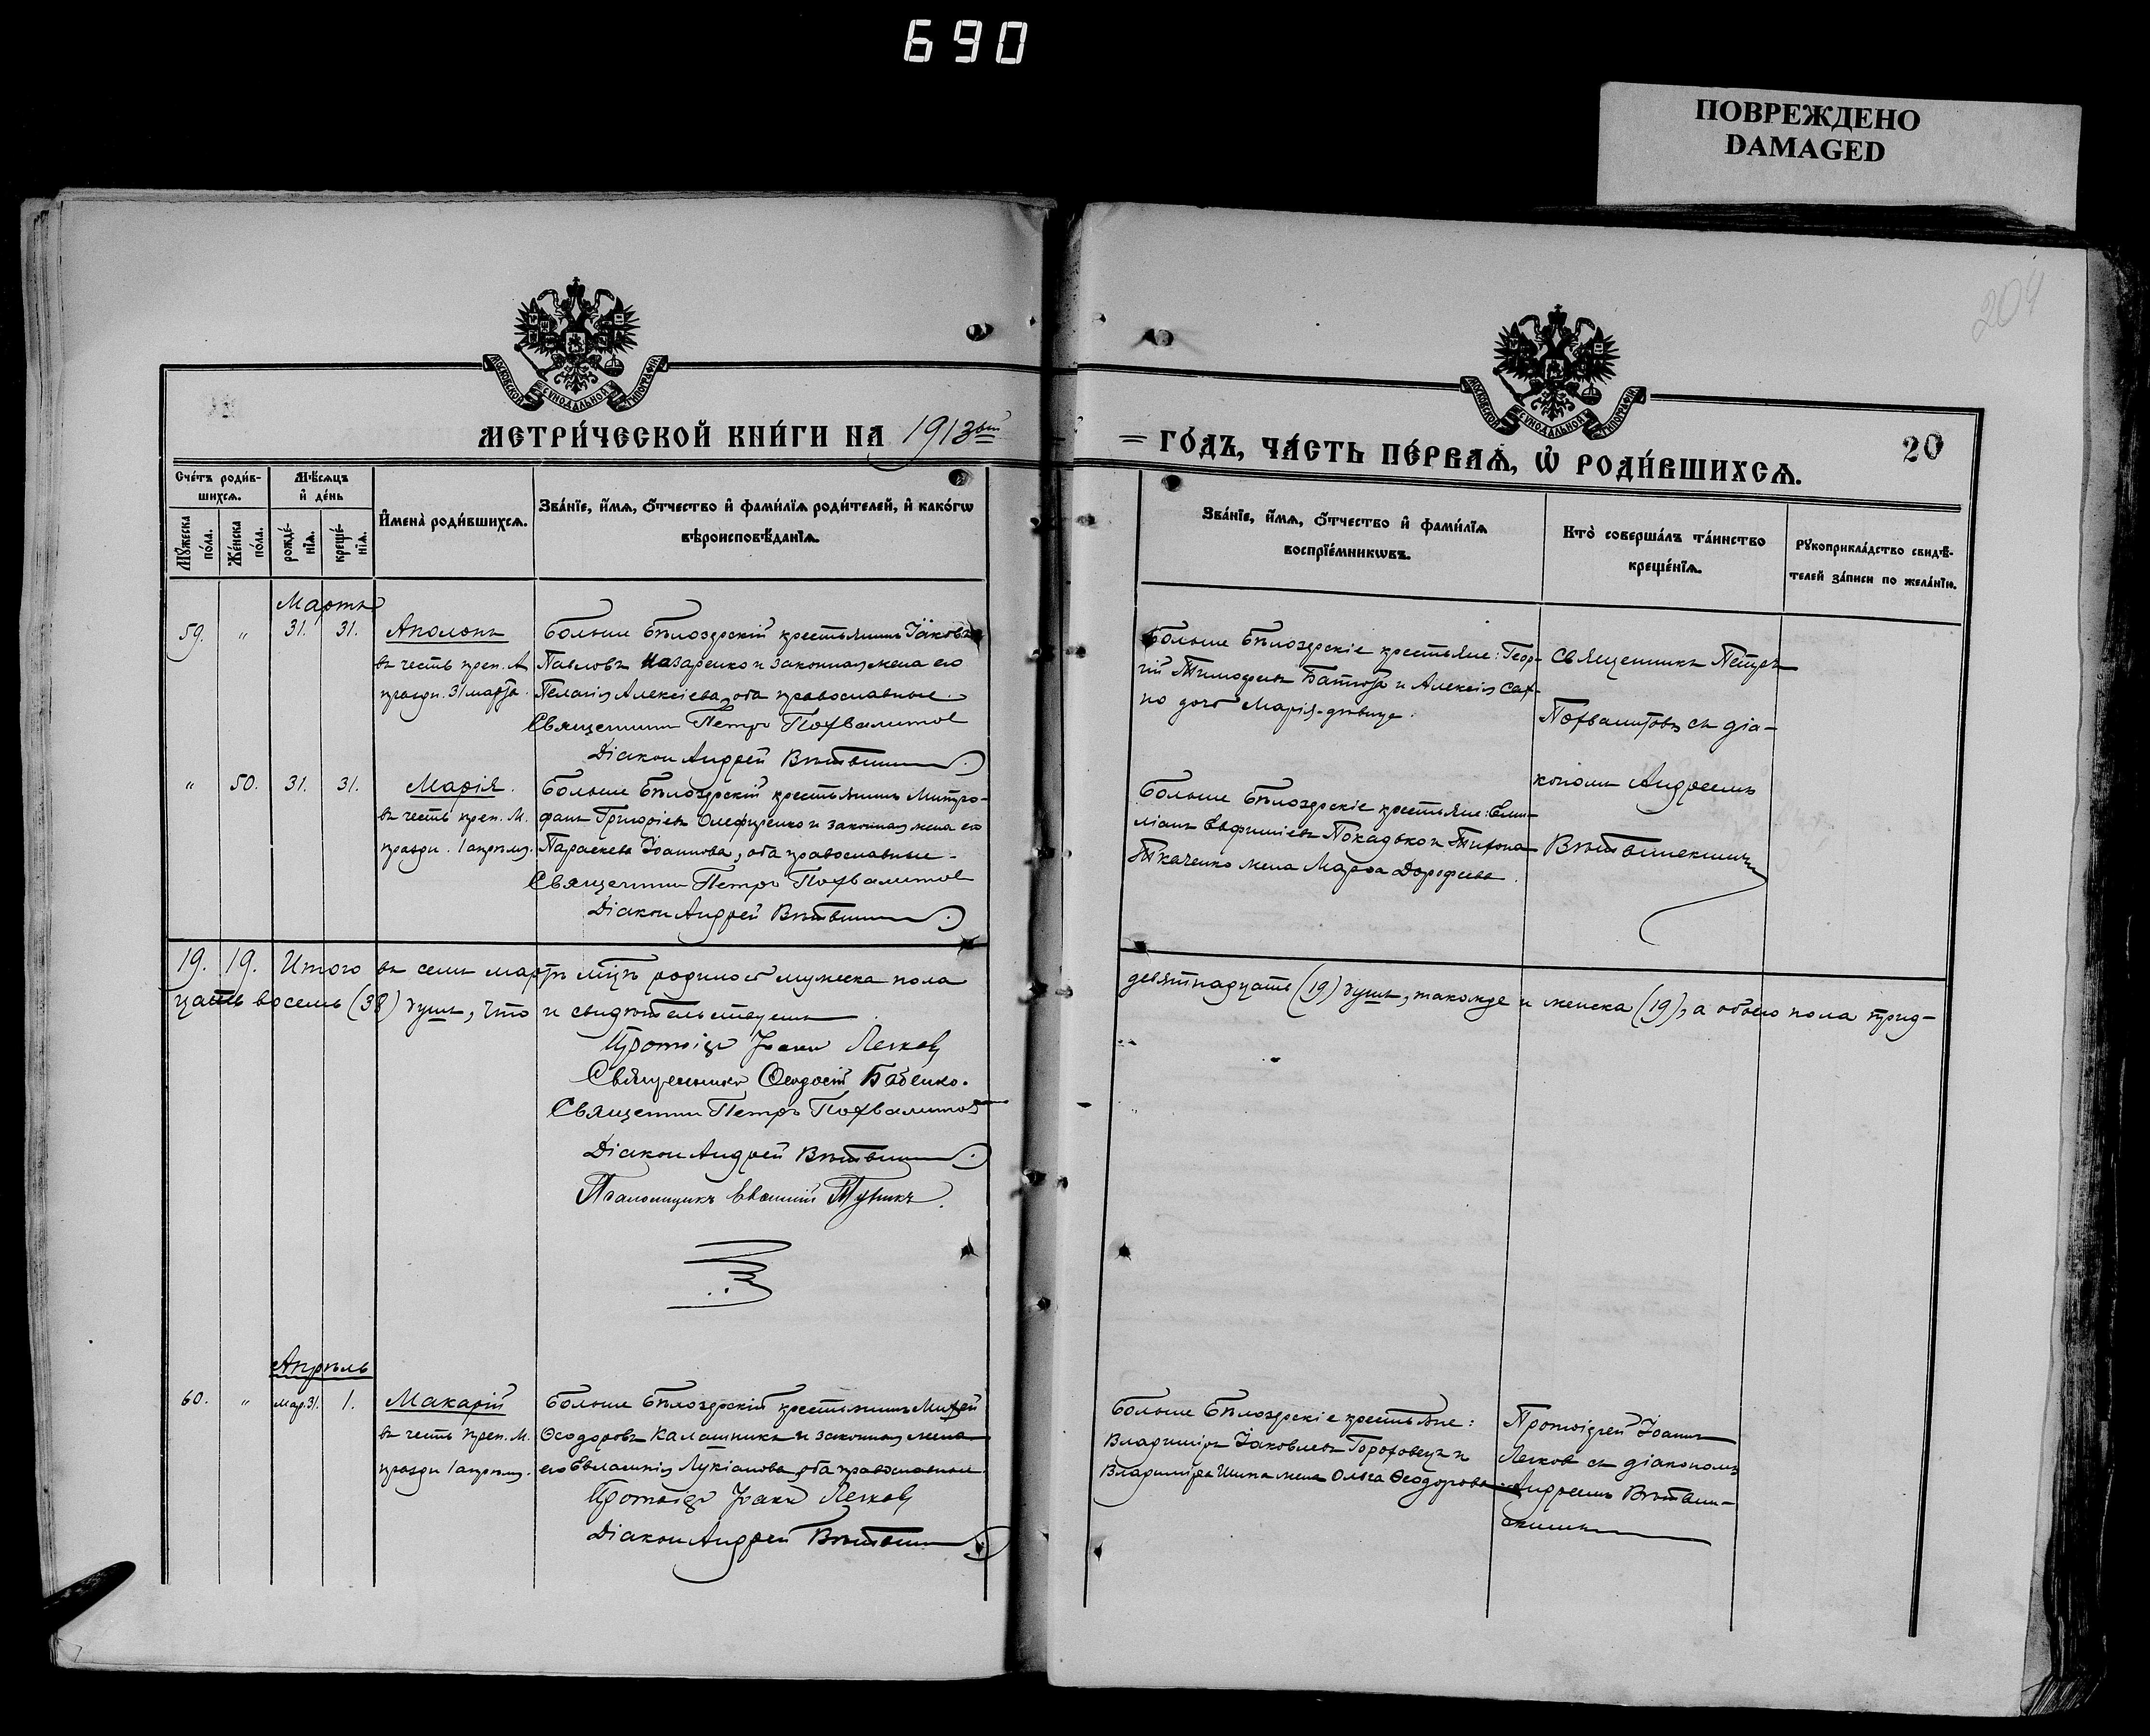 690
ПОВРЕЖДЕНО
DAMAGED
204
МОСКОВСКОЙ СУНОДАЛЬНОЙ ТИПОГРАФІИ
МОСКОВСКОЙ СУНОДАЛЬНОЙ ТИПОГРАФІИ
МЕТРИ́ЧЕСКОЙ КНИ́ГИ НА 1913ый
= ГО́ДЪ, ЧА́СТЬ ПЕ́РВАѦ, Ѡ҆ РОДИ́ВШИХСѦ.
20
Сче́тъ роди́в-
шихсѧ.
Мѣ́сѧцъ
и҆ де́нь
Мꙋ́жеска по́ла.
Же́нска по́ла.
рожде́-нїѧ.
креще́-нїѧ.
И҆мена̀ роди́вшихсѧ.
Зва́нїе, и҆́мѧ, ѻ҆́тчество и҆ фами́лїѧ роди́телей, и҆ како́гѡ
вѣроисповѣ́данїѧ.
Зва́нїе, и҆́мѧ, ѻ҆́тчество и҆ фами́лїѧ
воспрїе́мникѡвъ.
Кто̀ соверша́лъ та́инство
креще́нїѧ.
Рꙋкоприкла́дство свидѣ́-
телей за́писи по жела́нїю.
Мартъ
59. " 31. 31. Аполонъ
въ честь преп. А
праздн. 31 марта.
Больше Бѣлозерскій крестьянинъ Іаковъ
Павловъ Назаренко и законная жена его
Пелагія Алексіева, оба православные.
Священникъ Петръ Похвалитов
Діакон Андрей
Больше Бѣлозерскіе крестьяне: Геор-
гій Тимофеевъ и Алексія Сах-
но дочь Марія-дѣвица.
Священникъ Петръ
Похвалитовъ съ діа-
кономъ Андреемъ
" 50. 31. 31. Марія.
въ честь преп. М.
праздн. 1 апрѣля.
Больше Бѣлозерскій крестьянинъ Митро-
фанъ Григоріевъ Олефиренко и законная жена его
Параскева Іоаннова, оба православные.
Священникъ Петръ Похвалитов
Діакон Андрей
Больше Бѣлозерскіе крестьяне: Еми-
ліанъ Евфиміевъ и Тихона
Ткаченко жена Марѳа Дорофеева.
19. 19. Итого въ семъ мартѣ мцѣ родилось мужеска пола
девятнадцать (19) душъ, такожде и женска (19), а обоего пола трид-
цать восемь (38) душъ, что и свидѣтельствуемъ
Протоіер Іоанн Легков
Священникъ Ѳеодосій Бабенко.
Священник Петръ Похвалитов
Діакон Андрей
Псаломщикъ
Апрѣль
60. " Мар. 31. 1. Макарій
въ честь преп. М.
праздн. 1 апрѣля.
Больше Бѣлозерскій крестьянинъ
Ѳеодоровъ Калашникъ и законная жена
его Евлампія Лукіанова, оба православные.
Протоіер Іоанн Легков
Діакон Андрей
Больше Бѣлозерскіе крестьяне:
Владиміръ Іаковлевъ Гороховецъ и
Владиміра жена Ольга Ѳеодорова
Протоіерей Іоаннъ
Легков съ діакономъ
Андреемъ